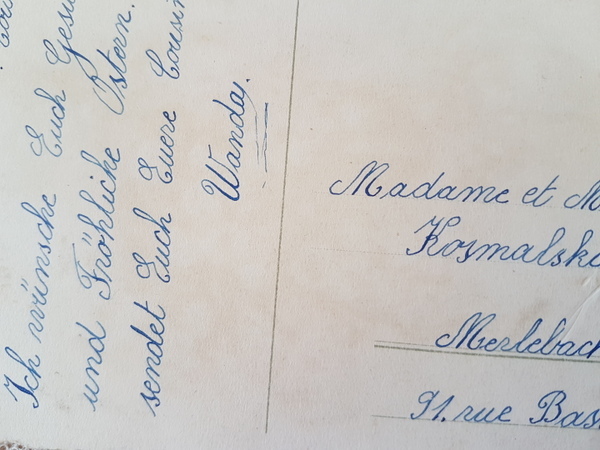 Ich wünsche Euch Gesu
und Fröhliche Ostern.
sendet Euch Euere Cousin
Wanda.
Madame et M
Kosmalsk
Merlebach
91. rue Bas